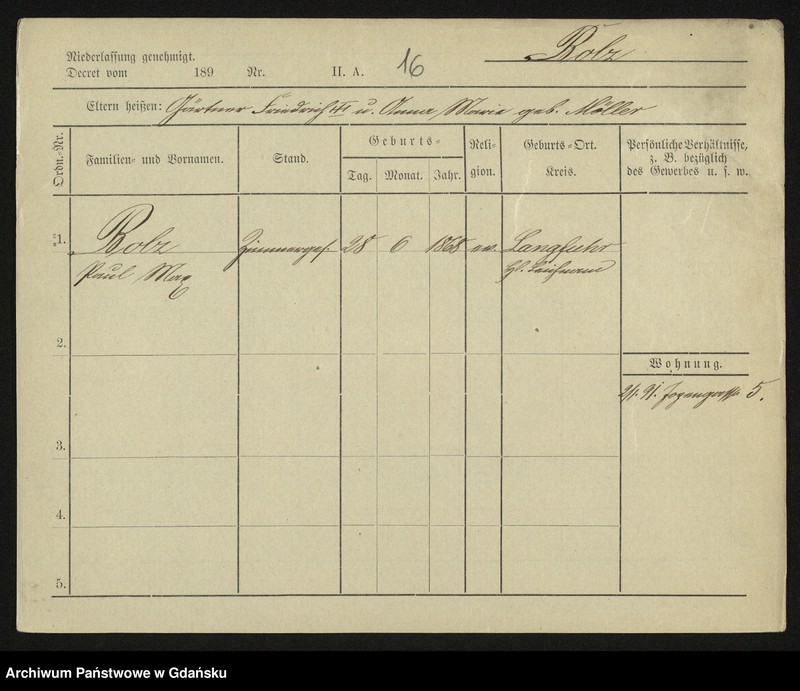 Niederlassung genehmigt.
Decret vom 189 Nr. II. A. 16
Bolz
Eltern heißen: Gärtner Friedrich u. Anna Maria geb. Möller
Ordn.-Nr.
Familien- und Vornamen.
Stand.
Geburts-
Tag. Monat. Jahr.
Reli-
gion.
Geburts-Ort.
Kreis.
Persönliche Verhältnisse,
z. B. bezüglich
des Gewerbes u. s. w.
1. Bolz Zimmerges. 28 6 1868 ev. Langfuhr
Paul Max
2.
Wohnung.
2/1. 91. 5.
3.
4.
5.
Archiwum Państwowe w Gdańsku